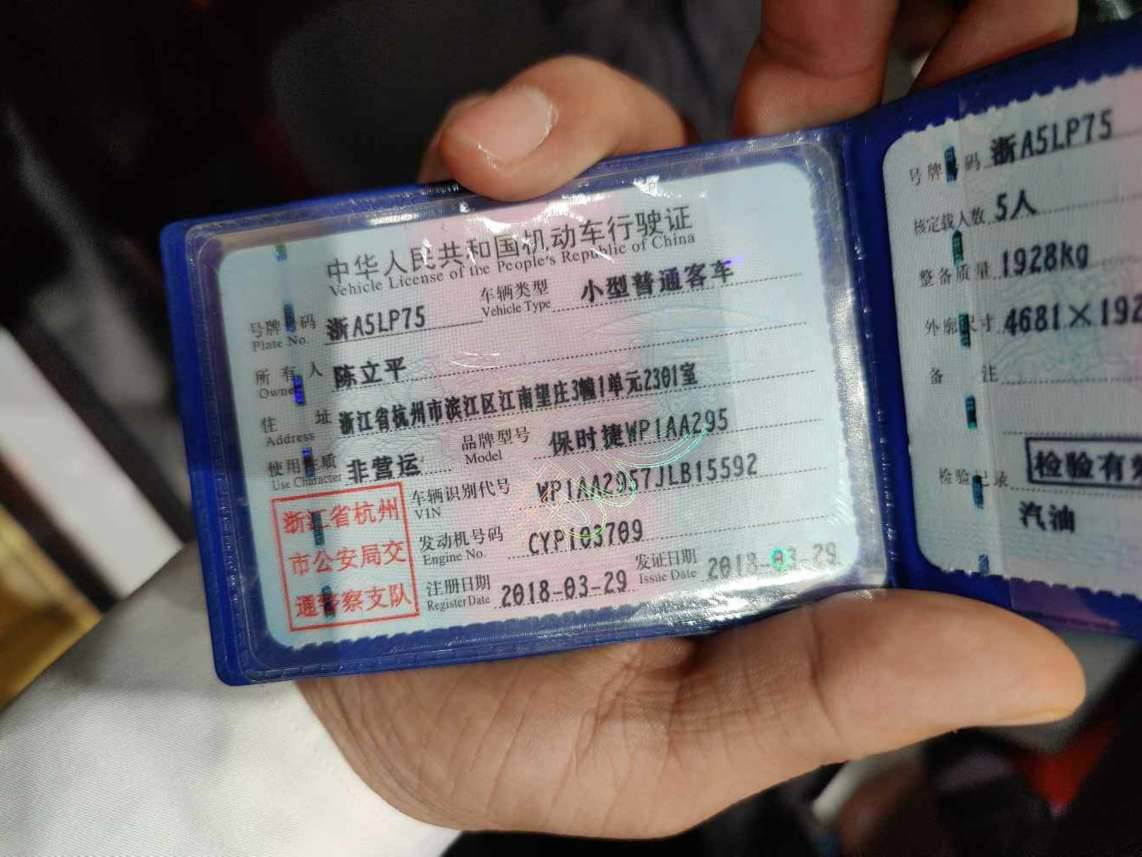 中华人民共和国机动车行驶证
Vehicle License of the People's Republic of China
号牌号码 浙A5LP75 车辆类型 小型普通客车
Plate No. Vehicle Type
所有人 陈立平
Owner
住址 浙江省杭州市滨江区江南望庄3幢1单元2301室
Address
使用性质 非营运 品牌型号 保时捷WP1AA295
Use Character Model
浙江省杭州
市公安局交
通警察支队
车辆识别代号 WP1AA2957JLB15592
VIN
发动机号码 CYP103709
Engine No.
注册日期 2018-03-29 发证日期 2018-03-29
Register Date Issue Date
号牌号码 浙A5LP75
核定载人数 5人
整备质量 1928kg
外廓尺寸 4681×192
备注
检验记录 检验有
汽油